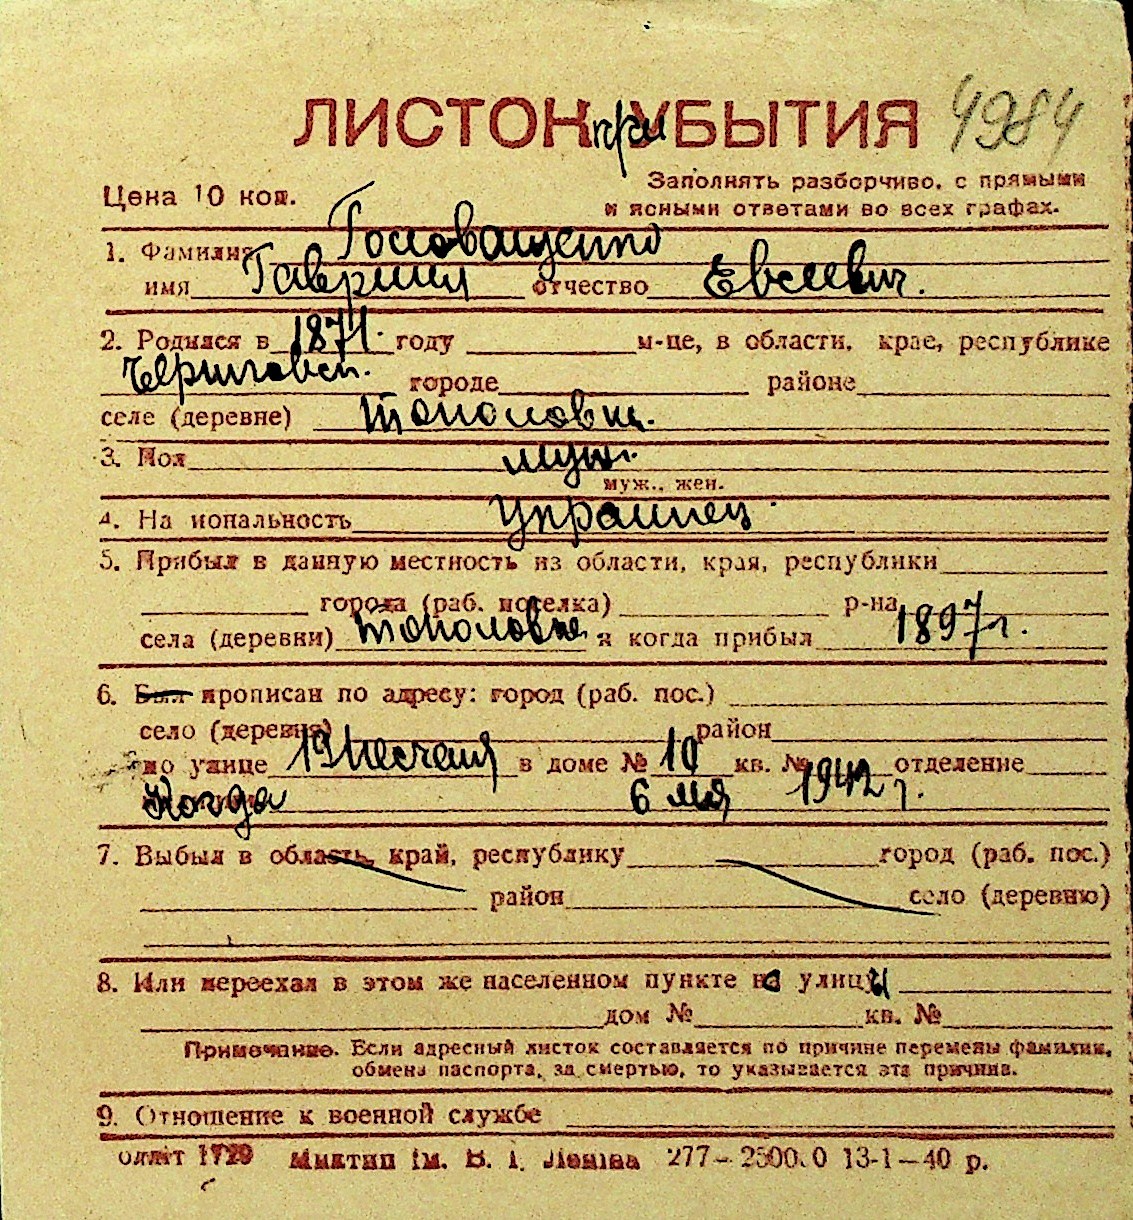 ЛИСТОК при УБЫТИЯ 4984
Цена 10 коп.
Заполнять разборчиво, с прямыми
и ясными ответами во всех графах.
1. Фамилия Головащенко
имя Гавриил отчество Евсеевич.
2. Родился в 1871. году м-це, в области, крае, республике
Черниговск. городе районе
селе (деревне) Тополовка.
3. Пол муж.
муж., жен.
4. На иональность Украинец.
5. Прибыл в данную местность из области, края, республики
города (раб. поселка) р-на
села (деревни) Тополовка и когда прибыл 1897 г.
6. Был прописан по адресу: город (раб. пос.)
село (деревня) район
по улице 19 Песчаная в доме № 10 кв. № отделение
Когда 6 мая 1942 г.
7. Выбыл в область, край, республику город (раб. пос.)
район село (деревню)
8. Или переехал в этом же населенном пункте на улицу
дом № кв. №
Примечание. Если адресный листок составляется по причине перемены фамилии,
обмена паспорта, за смертью, то указывается эта причина.
9. Отношение к военной службе
Миктип ім. В. І. Леніна 277—2500.0 13-1—40 р.